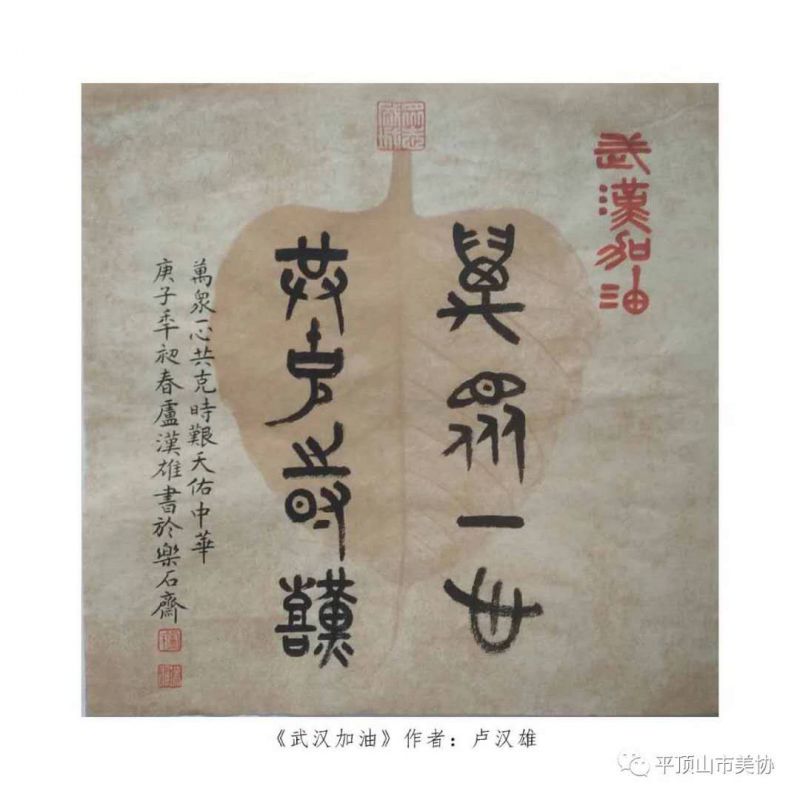 武漢加油
萬眾一心
共克時艱
萬眾一心共克時艱天佑中華
庚子年初春盧漢雄書於樂石齋
《武汉加油》作者：卢汉雄
平顶山市美协